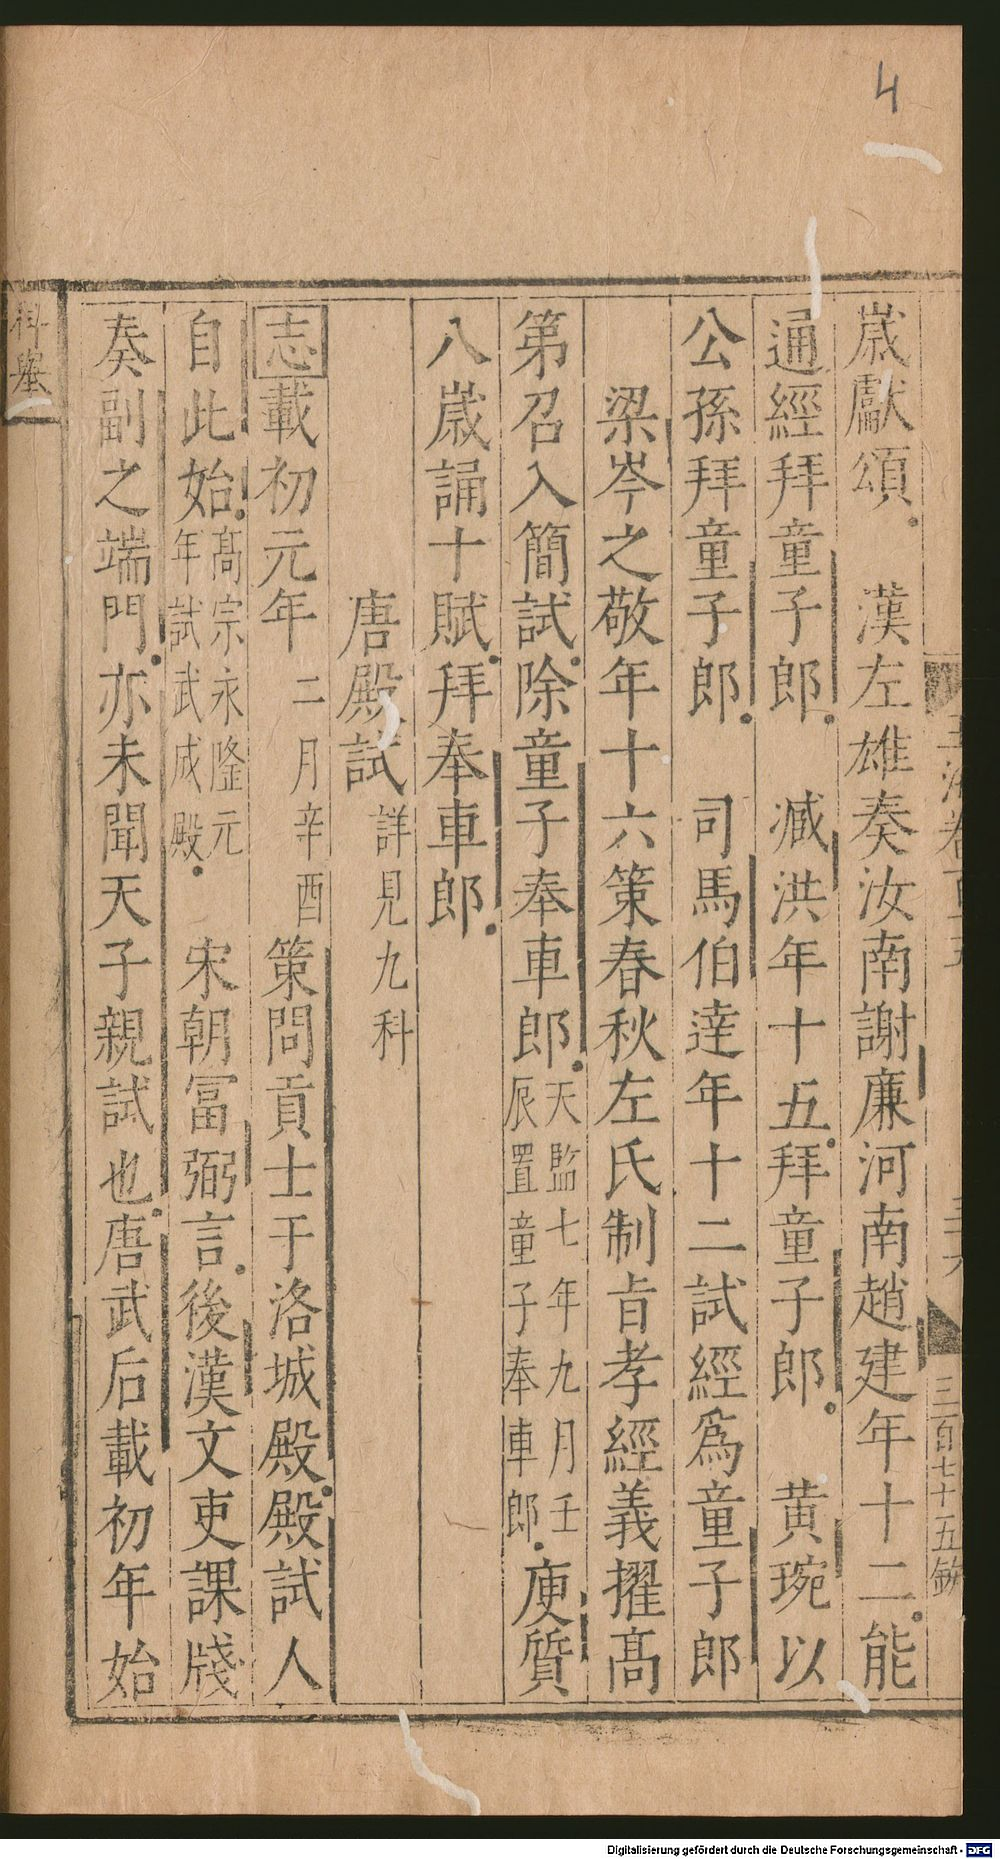 4
歲獻頌　漢左雄奏汝南謝廉河南趙建年十二能
通經拜童子郎　臧洪年十五拜童子郎　黃琬以
公孫拜童子郎　司馬伯達年十二試經爲童子郎
梁岑之敬年十六策春秋左氏制旨孝經義擢高
第召入簡試除童子奉車郎天監七年九月壬辰置童子奉車郎庾質
八歲誦十賦拜奉車郎
唐殿試詳見九科
志載初元年二月辛酉策問貢士于洛城殿殿試人
自此始高宗永隆元年試武成殿　宋朝富弼言後漢文吏課牋
奏副之端門亦未聞天子親試也唐武后載初年始
科舉
三百七十五
Digitalisierung gefördert durch die Deutsche Forschungsgemeinschaft - DFG